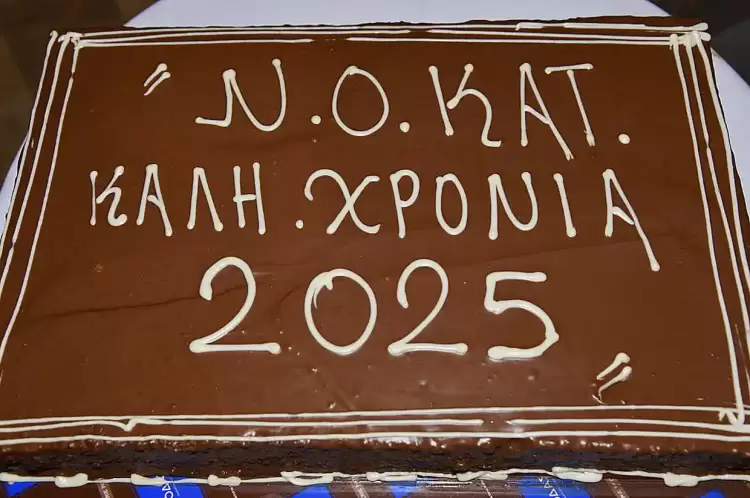 "Ν.Ο.ΚΑΤ.
ΚΑΛΗ.ΧΡΟΝΙΑ
2025"